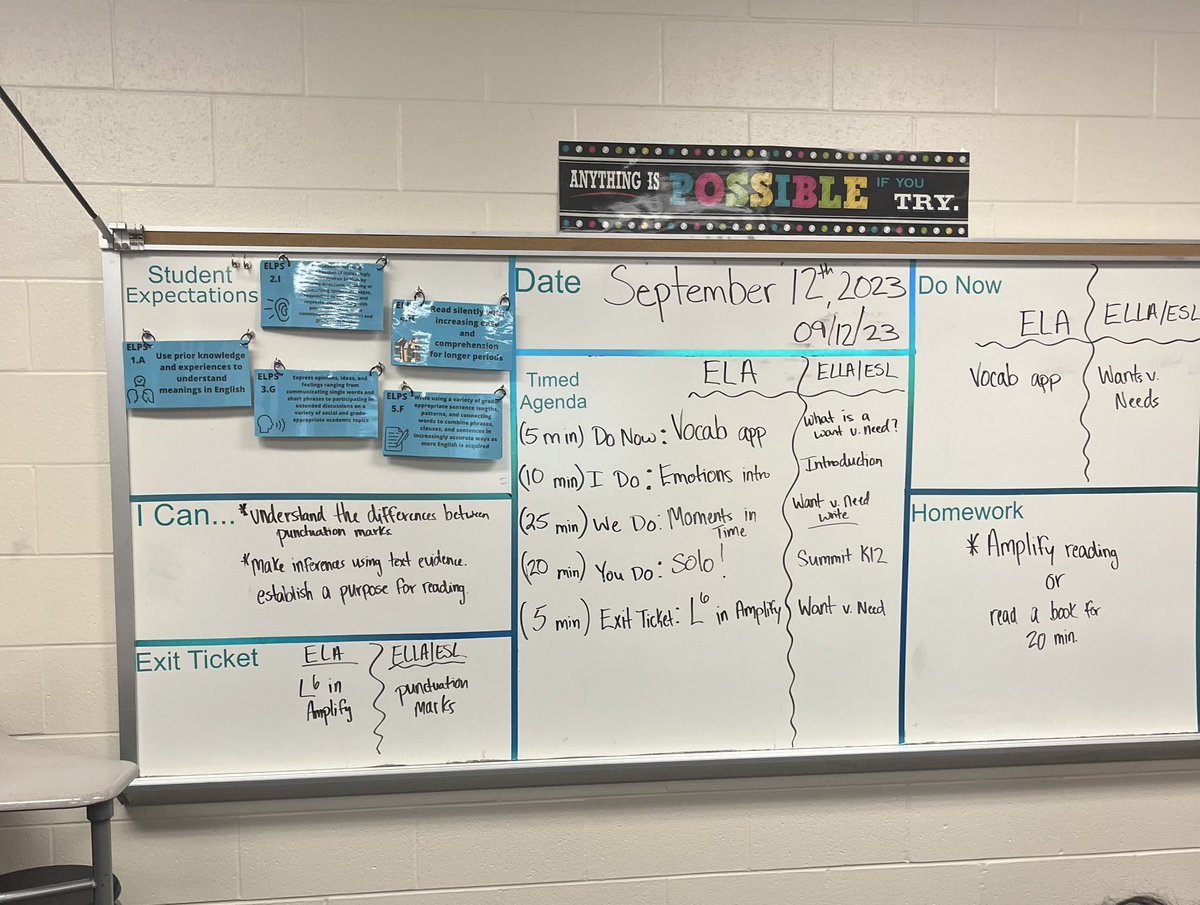 ANYTHING IS POSSIBLE IF YOU TRY.
Student
Expectations
ELPS
2.I
ELPS
Read silently with
increasing ease
and
comprehension
for longer periods
ELPS
1.A
Use prior knowledge
and experiences to
understand
meanings in English
ELPS
3.G
Express opinions, ideas, and
feelings ranging from
communicating single words and
short phrases to participating in
extended discussions on a
variety of social and grade-
appropriate academic topics
ELPS
5.F
Write using a variety of grade-
appropriate sentence lengths,
patterns, and connecting
words to combine phrases,
clauses, and sentences in
increasingly accurate ways as
more English is acquired
I Can...
*understand the differences between
punctuation marks
*Make inferences using text evidence.
establish a purpose for reading.
Exit Ticket
ELA
L6 in
Amplify
ELLA/ESL
punctuation
marks
Date
September 12th, 2023
09/12/23
Timed
Agenda
ELA
(5 min) Do Now: Vocab app
(10 min) I Do: Emotions intro
(25 min) We Do: Moments in
Time
(20 min) You Do: Solo!
(5 min) Exit Ticket: L6 in Amplify
ELLA/ESL
What is a
want v. need?
Introduction
Want v. Need
write
Summit K12
Want v. Need
Do Now
ELA
Vocab app
ELLA/ESL
Wants v.
Needs
Homework
* Amplify reading
or
read a book for
20 min.